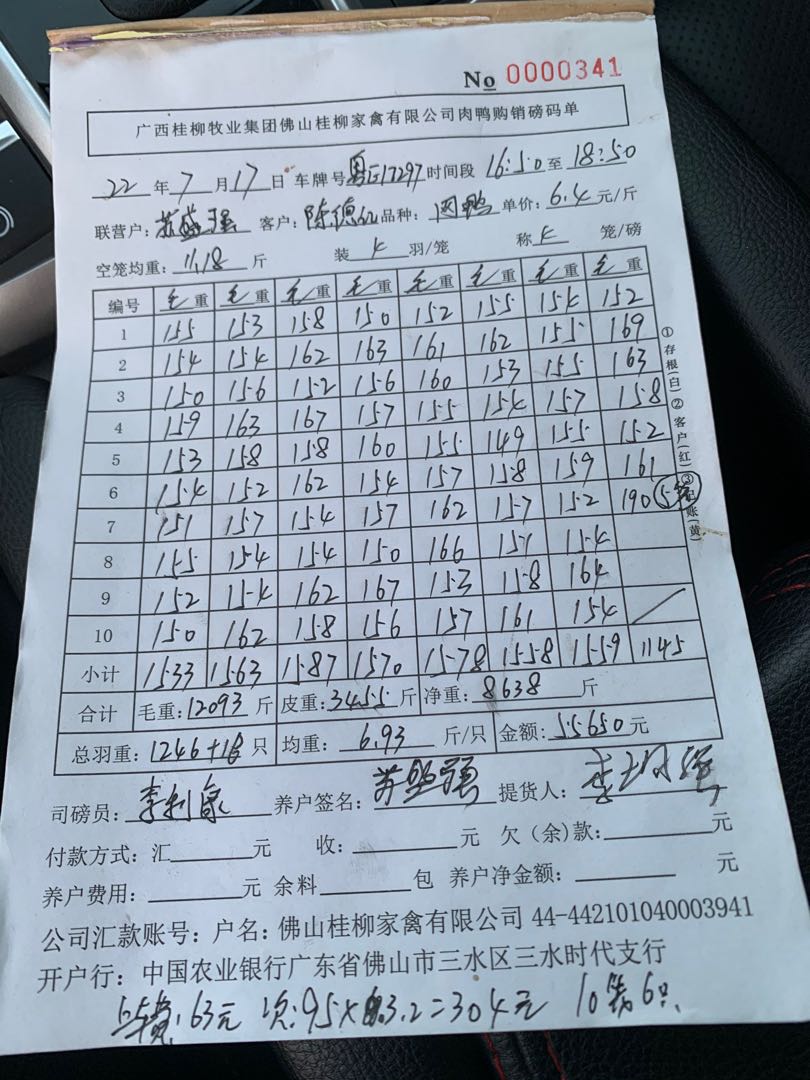 No 0000341
广西桂柳牧业集团佛山桂柳家禽有限公司肉鸭购销磅码单
22 年 7 月 17 日 车牌号 粤E17297 时间段 16:50 至 18:50
联营户: 苏盛强 客户: 陈德 品种: 肉鸭 单价: 6.4 元/斤
空笼均重: 11.18 斤 装 羽/笼 称 笼/磅
编号 毛重 毛重 毛重 毛重 毛重 毛重 毛重 毛重
1 155 153 158 150 152 155 154 152
2 154 154 162 163 161 162 155 169
3 150 156 152 156 160 153 155 163
4 159 163 167 157 155 154 157 158
5 153 158 158 160 155 149 155 152
6 154 152 162 154 157 158 159 161
7 151 157 154 157 162 157 152 190 5笼
8 155 154 154 150 166 151 154
9 152 154 162 167 153 158 164
10 150 162 158 156 157 161 154
小计 1533 1563 1587 1570 1578 1558 1559 1145
合计 毛重: 12093 斤 皮重: 3455 斤 净重: 8638 斤
总羽重: 1246+ 只 均重: 6.93 斤/只 金额: 55650 元
①存根(白)②客户(红)③记账(黄)
司磅员: 李利泉 养户签名: 苏盛强 提货人:
付款方式: 汇 元 收: 元 欠(余)款: 元
养户费用: 元 余料 包 养户净金额: 元
公司汇款账号: 户名: 佛山桂柳家禽有限公司 44-442101040003941
开户行: 中国农业银行广东省佛山市三水区三水时代支行
63元 次: 95×3.2=304元 10笼6只